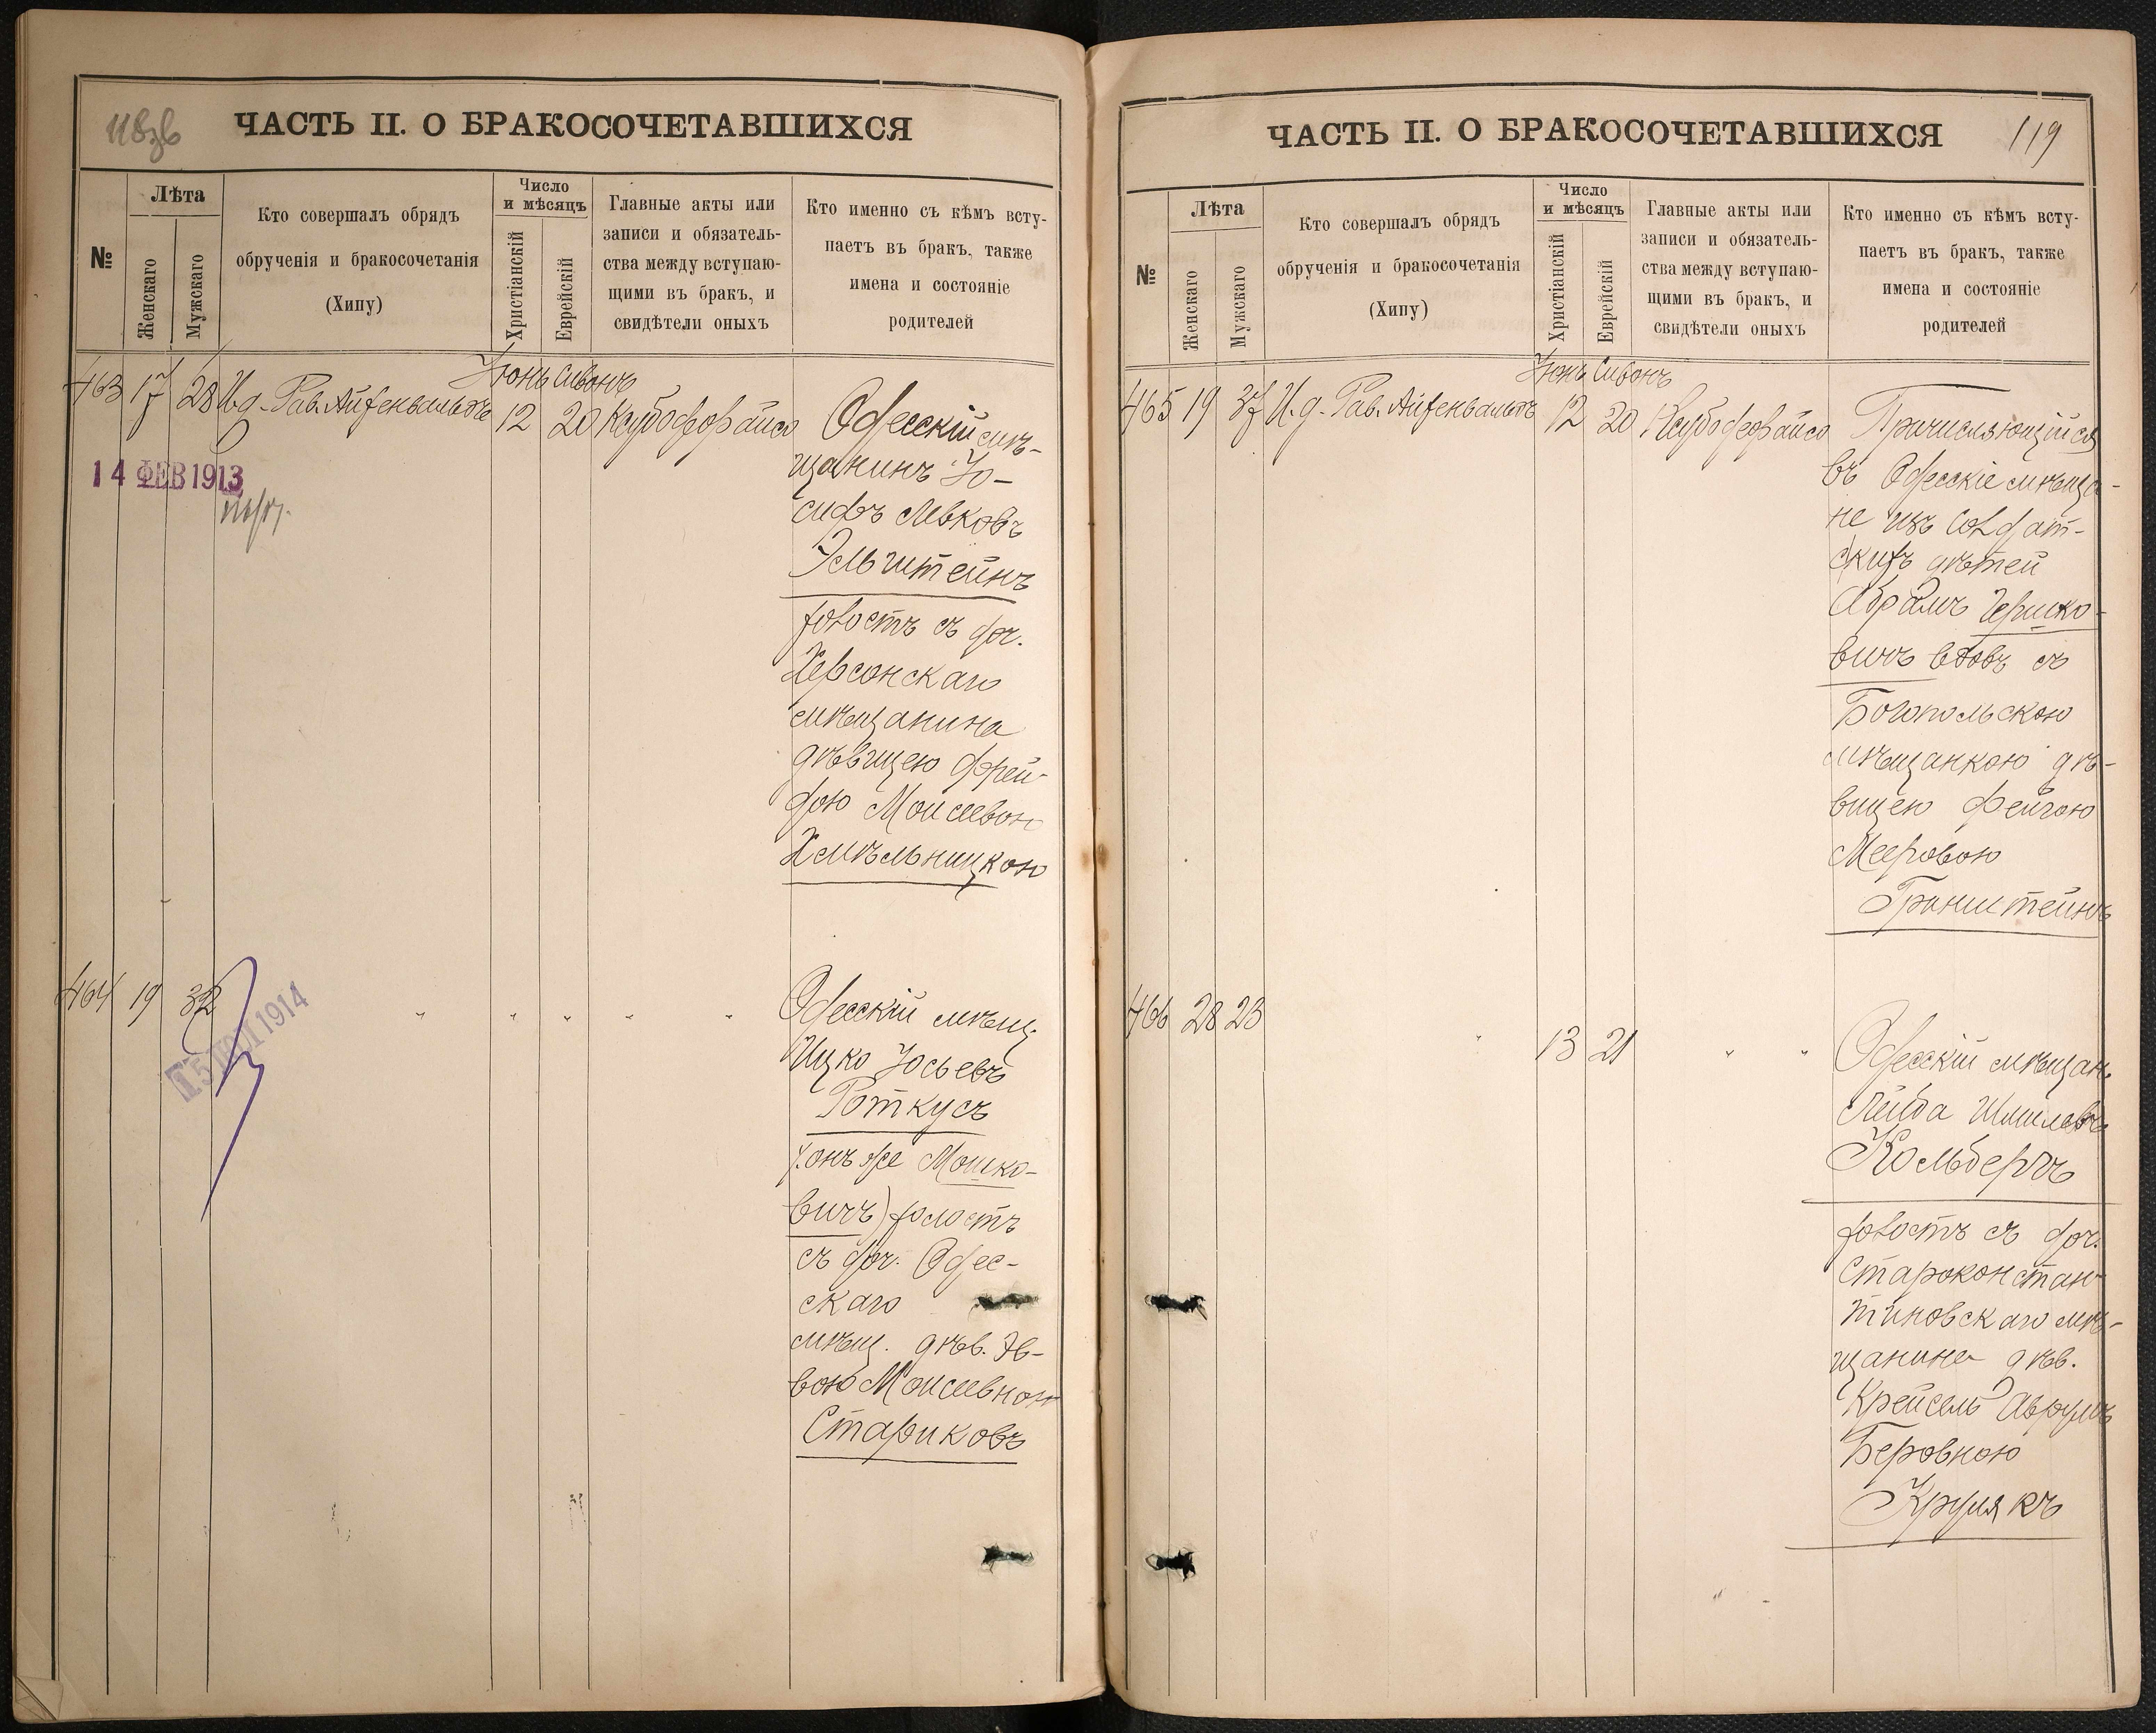 118об
ЧАСТЬ II. О БРАКОСОЧЕТАВШИХСЯ
№
Лѣта
Женскаго
Мужскаго
Кто совершалъ обрядъ
обрученія и бракосочетанія
(Хипу)
Число
и мѣсяцъ
Христіанскій
Еврейскій
Главные акты или
записи и обязатель-
ства между вступаю-
щими въ бракъ, и
свидѣтели оныхъ
Кто именно съ кѣмъ всту-
паетъ въ бракъ, также
имена и состояніе
родителей
Іюнь Сивонъ
463 17 28 И.д. Рав. Айзенвальдъ 12 20
Одесскій мѣ-
щанинъ Іо-
сифъ Левковъ
Эльштейнъ
холостъ съ доч.
Херсонскаго
мѣщанина
дѣвицею Фрей-
дою Моисеевою
Хмѣльницкою
14 ФЕВ 1913
464 19 32 " " " " "
Одесскій мѣщ.
Ицко Іосьевъ
Роткусъ
(онъ же Мошко-
вичъ) холостъ
съ доч. Одес-
скаго
мѣщ. дѣв. Эв-
вою Моисеевною
Стариковъ
1914
ЧАСТЬ II. О БРАКОСОЧЕТАВШИХСЯ
119
№
Лѣта
Женскаго
Мужскаго
Кто совершалъ обрядъ
обрученія и бракосочетанія
(Хипу)
Число
и мѣсяцъ
Христіанскій
Еврейскій
Главные акты или
записи и обязатель-
ства между вступаю-
щими въ бракъ, и
свидѣтели оныхъ
Кто именно съ кѣмъ всту-
паетъ въ бракъ, также
имена и состояніе
родителей
Іюнь Сивонъ
465 19 37 И.д. Рав. Айзенвальдъ 12 20
Причисляющійся
въ Одесскіе мѣща-
не изъ солдат-
скихъ дѣтей
Абрамъ Гершко-
вичъ вдовъ съ
Богопольскою
мѣщанкою дѣ-
вицею Фейгою
Мееровою
Гранштейнъ
466 28 23 " 13 21 " "
Одесскій мѣщан.
Лейба Шмилевъ
Кольбергъ
холостъ съ доч.
Староконстан-
тиновскаго мѣ-
щанина дѣв.
Крейсель Аврумъ
Беровною
Крулякъ